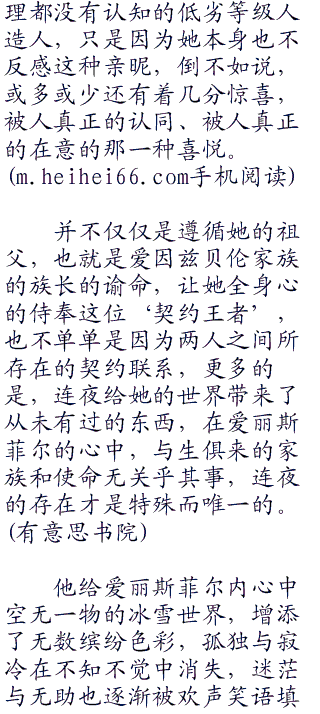 理都没有认知的低劣等级人
造人，只是因为她本身也不
反感这种亲昵，倒不如说，
或多或少还有着几分惊喜，
被人真正的认同、被人真正
的在意的那一种喜悦。
(m.heihei66.com手机阅读)
并不仅仅是遵循她的祖
父，也就是爱因兹贝伦家族
的族长的谕命，让她全身心
的侍奉这位‘契约王者’，
也不单单是因为两人之间所
存在的契约联系，更多的
是，连夜给她的世界带来了
从未有过的东西，在爱丽斯
菲尔的心中，与生俱来的家
族和使命无关乎其事，连夜
的存在才是特殊而唯一的。
(有意思书院)
他给爱丽斯菲尔内心中
空无一物的冰雪世界，增添
了无数缤纷色彩，孤独与寂
冷在不知不觉中消失，迷茫
与无助也逐渐被欢声笑语填